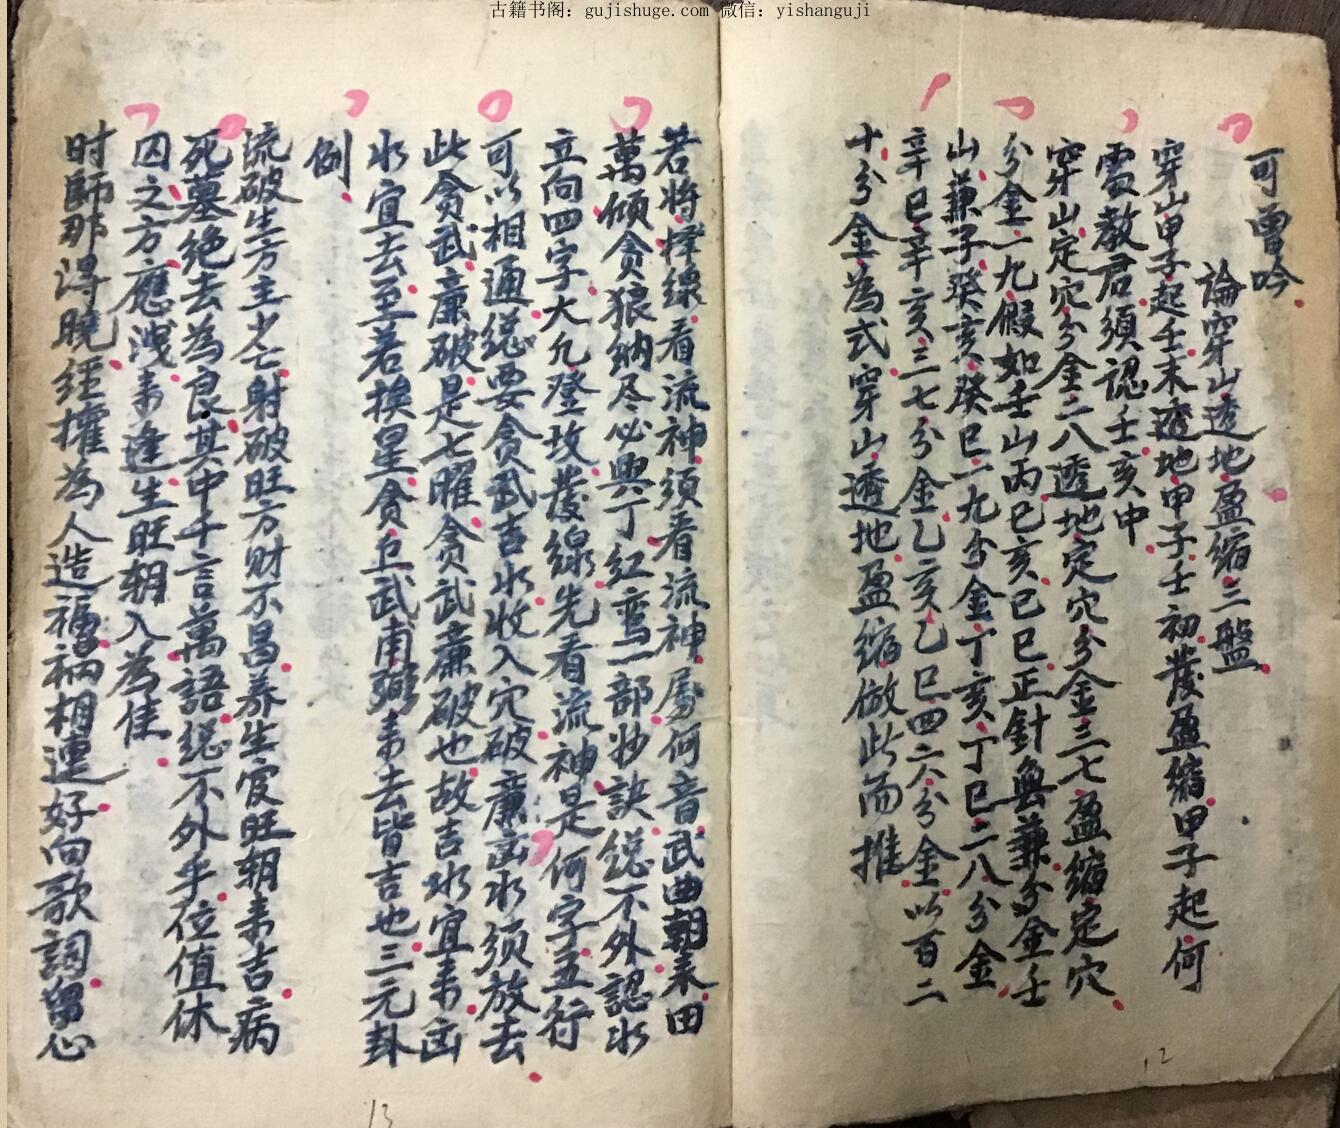 古籍书阁：gujishuge.com 微信：yishanguji
可曾吟
論穿山透地盈缩三盤
穿山甲子起壬末透地甲子壬初發盈缩甲子起何
處教君須認壬亥中
穿山定穴分金二八透地定穴分金三七盈缩定穴
分金一九假如壬山丙巳亥巳巳正針無兼分金壬
山兼子癸亥癸巳一九分金丁亥丁巳二八分金
辛巳辛亥三七分金乙亥乙巳四六分金以百二
十分金為式穿山透地盈缩做此而推
12
若将擇線看流神須看流神屬何音武曲朝来田
萬倾贪狼纳尽必興丁红鸾一部妙訣総不外認水
立向四字大凡登坟發線先看流神是何字五行
可以相通総要贪武吉水收入穴破廉凶水须放去
此贪武廉破是七曜贪武廉破也故吉水宜来凶
水宜去至若挨星贪巨武甫弼来去皆吉也三元卦
例
流破生方主少亡射破旺方财不昌养生官旺朝来吉病
死墓绝去為良其中千言萬語総不外乎位值休
囚之方應洩来逢生旺朝入為佳
时師那得曉經權為人造福禍相連好向歌詞留心
13